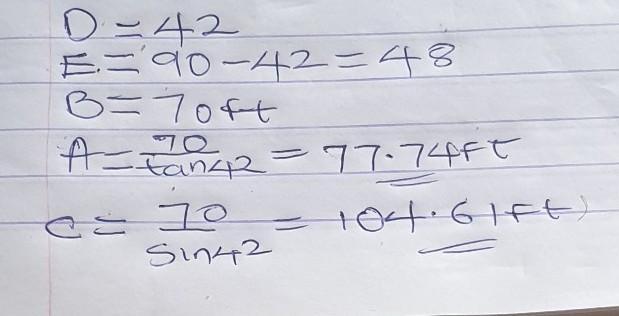 D = 42
E = 90 - 42 = 48
B = 70ft
A = 70/tan42 = 77.74ft
C = 70/Sin42 = 104.61ft